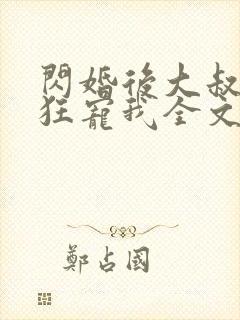 閃婚後大叔
狂寵我全文
鄭占國